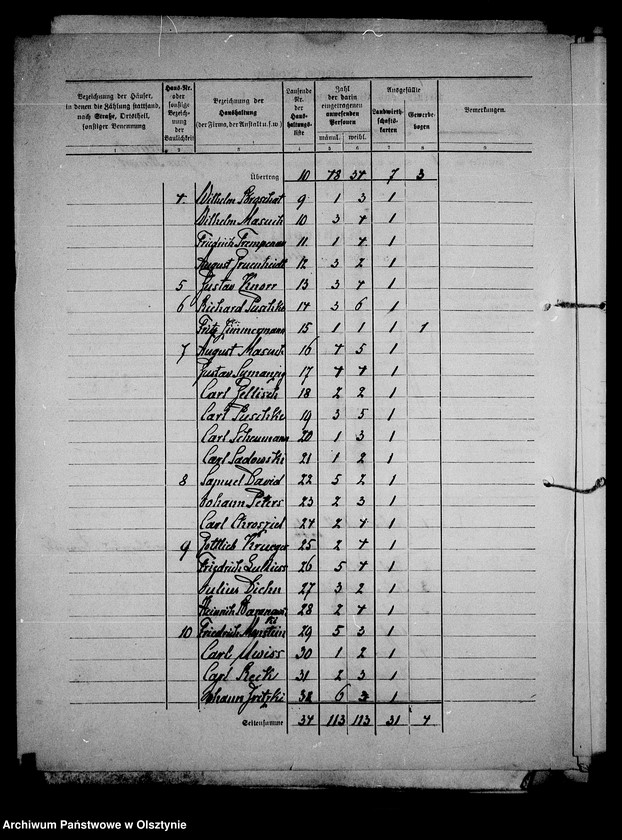 Bezeichnung der Häuser, in denen die Zählung stattfand, nach Straße, Ortsteil, sonstiger Benennung
Haus-Nr. oder sonstige Bezeichnung der Baulichkeit
Bezeichnung der Haushaltung (der Firma, der Anstalt u. s. w.)
Laufende Nr. der Haushaltungsliste
Zahl der darin eingetragenen anwesenden Personen
männl. weibl.
Ausgefüllte
Landwirtschaftskarten
Gewerbebogen
Bemerkungen.
1 2 3 4 5 6 7 8 9
Übertrag 10 48 34 7 3
4 Wilhelm 9 1 3 1
Wilhelm Masuch 10 3 4 1
Friedrich 11 1 4 1
August 12 3 2 1
5 Gustav Knorr 13 3 4 1
6 Richard Puschke 14 3 6 1
Fritz Zimmermann 15 1 1 1 1
7 August Masuch 16 4 5 1
Gustav Symanzig 17 4 4 1
Carl 18 2 2 1
Carl Puschke 19 3 5 1
Carl Scheumann 20 1 3 1
Carl Sadowski 21 1 2 1
8 Samuel David 22 5 2 1
Johann Peters 23 2 3 1
Carl Chrosziel 24 2 4 1
9 Gottlieb Krueger 25 2 4 1
Friedrich 26 5 4 1
Julius Diehn 27 3 2 1
Heinrich Baranowski 28 2 4 1
10 Friedrich 29 5 3 1
Carl 30 1 2 1
Carl 31 2 3 1
Johann Fritzki 32 6 3 1
Seitensumme 34 113 113 31 4
Archiwum Państwowe w Olsztynie